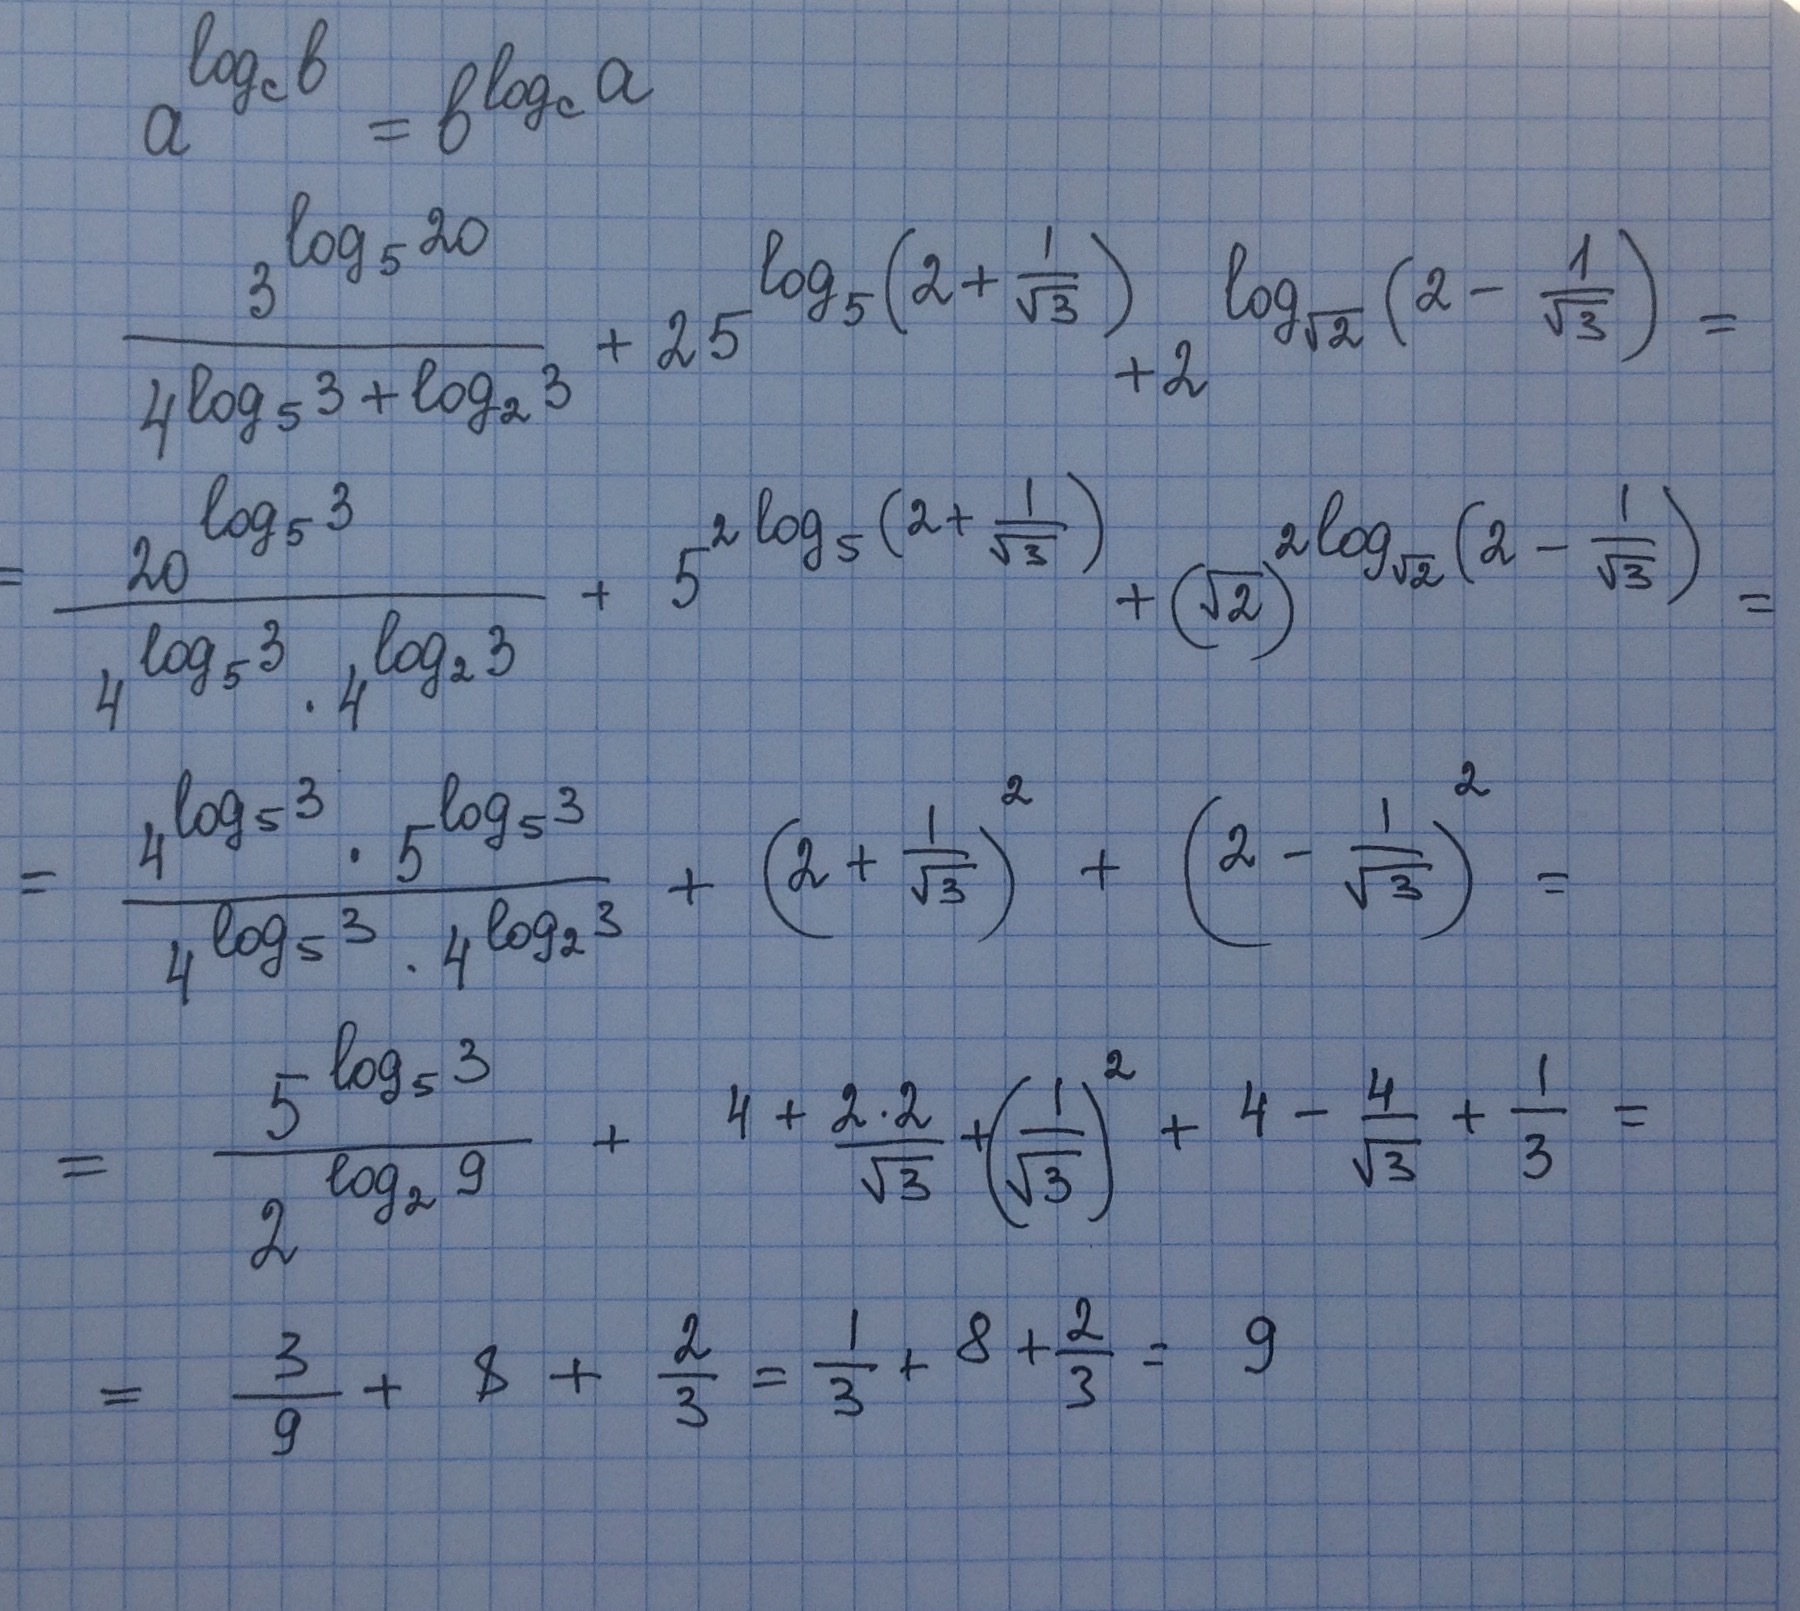 a^{log_c b} = b^{log_c a}
\frac{3^{log_5 20}}{4^{log_5 3 + log_2 3}} + 25^{log_5 (2 + \frac{1}{\sqrt{3}})} + 2^{log_{\sqrt{2}} (2 - \frac{1}{\sqrt{3}})} =
= \frac{20^{log_5 3}}{4^{log_5 3} \cdot 4^{log_2 3}} + 5^{2 log_5 (2 + \frac{1}{\sqrt{3}})} + (\sqrt{2})^{2 log_{\sqrt{2}} (2 - \frac{1}{\sqrt{3}})} =
= \frac{4^{log_5 3} \cdot 5^{log_5 3}}{4^{log_5 3} \cdot 4^{log_2 3}} + (2 + \frac{1}{\sqrt{3}})^2 + (2 - \frac{1}{\sqrt{3}})^2 =
= \frac{5^{log_5 3}}{2^{log_2 9}} + 4 + \frac{2 \cdot 2}{\sqrt{3}} + (\frac{1}{\sqrt{3}})^2 + 4 - \frac{4}{\sqrt{3}} + \frac{1}{3} =
= \frac{3}{9} + 8 + \frac{2}{3} = \frac{1}{3} + 8 + \frac{2}{3} = 9